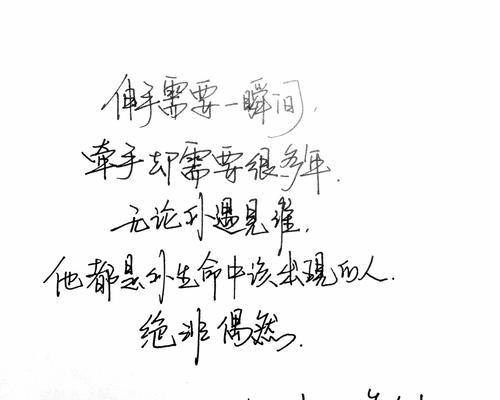 伸手需要一瞬间,
牵手却需要很多年.
无论你遇见谁,
他都是你生命中该出现的人.
绝非偶然.